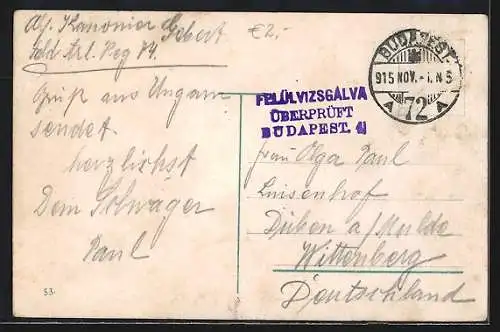 Abs. Kanonier Gebert
Feld Art. Reg 84.
€2,-
BUDAPEST
915 NOV.-1.N 5
A 72 A
FELÜLVIZSGÁLVA
ÜBERPRÜFT
BUDAPEST.
Gruß aus Ungarn
sendet
herzlichst
Dein Schwager
Paul
Frau Olga Paul
Luisenhof
Düben a/Mulde
Wittenberg
Deutschland
53.